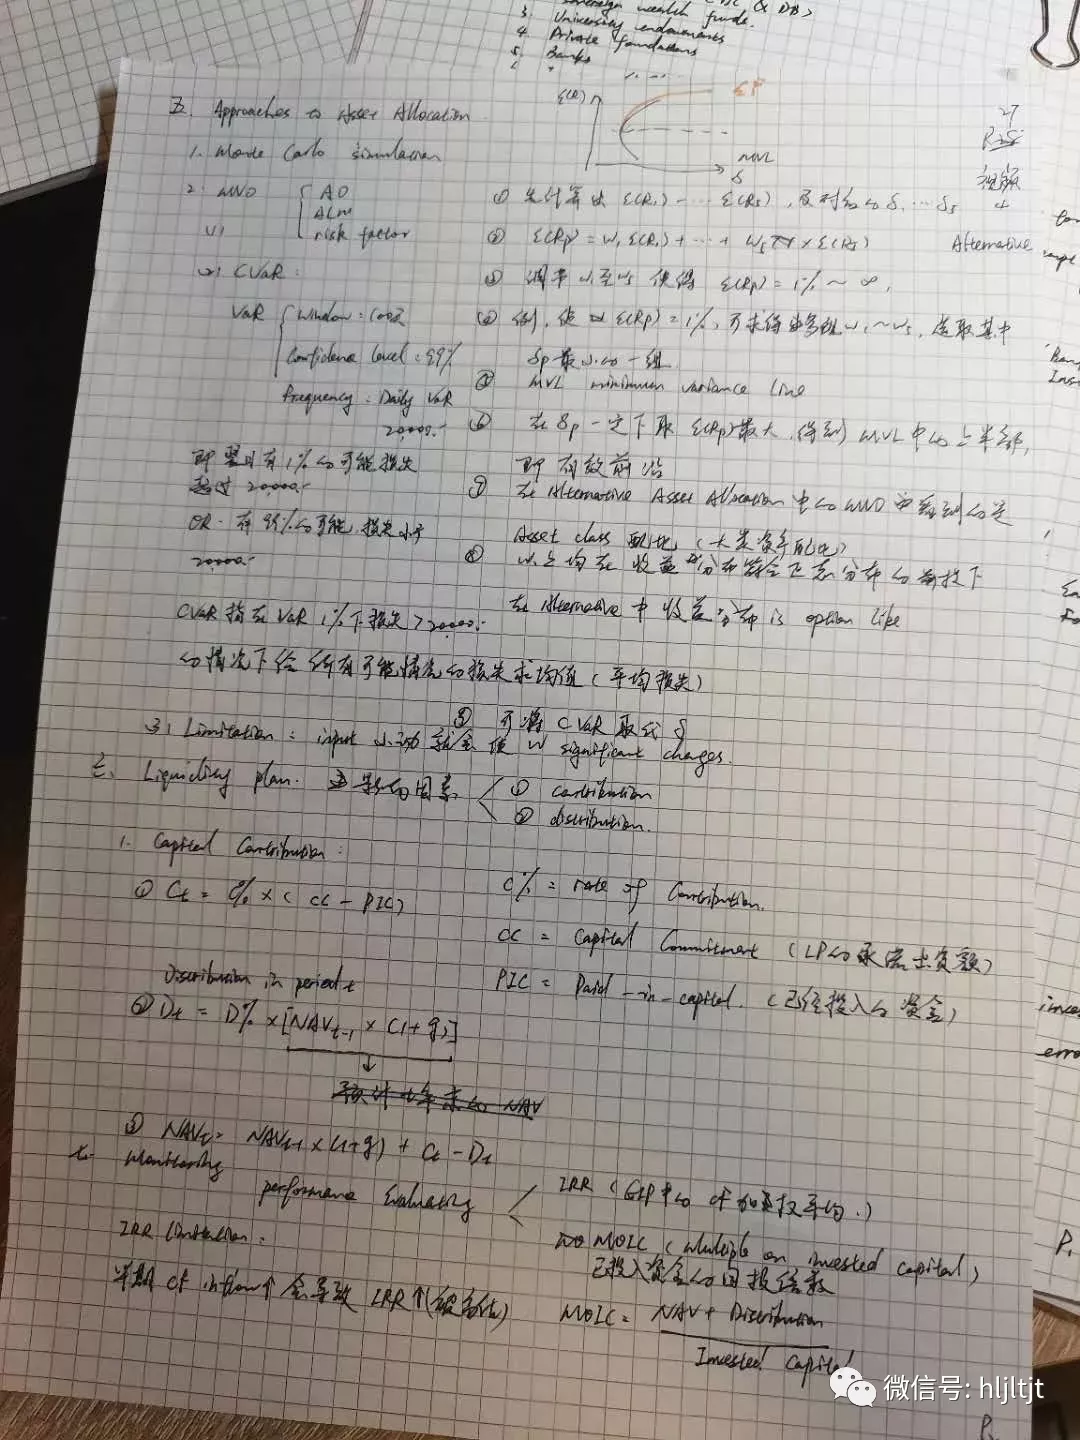 3. University endowments
4. Private foundations
5. Banks
五. Approaches to Asset Allocation
E(R)
EF
MVL
δ
27
R25
视频
Alternative
1. Monte Carlo simulation
2. MVO { AO
ALM
risk factor
① 先计算出 E(R₁) … E(R₅), 及对应的 δ₁ … δ₅
② E(Rp) = W₁E(R₁) + … + W₅ × E(R₅)
2) CVaR:
③ 调率 W₁至W₅ 使得 E(Rp) = 1% ~ ∞,
VaR { Window = 100天
④ 例, 使 E(Rp) = 1%, 可求得多组 W₁ ~ W₅, 选取其中
δp 最小的一组
Confidence level = 99%
⑤ MVL minimum variance line
Frequency: Daily VaR
20,000.-
⑥ 在 δp 一定下取 E(Rp) 最大, 得到 MVL 中的上半部,
即有效前沿
即翌日有1%的可能损失
超过 20,000.-
⑦ 在 Alternative Asset Allocation 中的 MVO 中得到的是
Asset class 配比 (大类资产配比)
OR. 有99%的可能, 损失小于
20,000.-
⑧ 以上均在收益分布符合正态分布的前提下
在 Alternative 中收益分布 is option like
CVaR 指在 VaR 1%下损失 > 20,000.-
的情况下给所有可能情况的损失求均值 (平均损失)
⑨ 可将 CVaR 取代 δ
3) Limitation: input 小动就会使 W significant changes.
Liquidity plan. 主要影响因素 < ① contribution
② distribution.
1. Capital Contribution:
① Ct = C% × (CC - PIC)
C% = rate of Contribution.
CC = Capital Commitment (LP的承诺出资额)
PIC = Paid-in-capital. (已经投入的资金)
Distribution in period t
② Dt = D% × [NAVt-1 × (1+g)]
预计 t 年末的 NAV
③ NAVt = NAVt-1 × (1+g) + Ct - Dt
七. Monitoring
performance Evaluating
IRR (GIP中的 CF 加权平均.)
MOIC (Multiple on invested capital)
已投入资金的回报倍数
IRR limitation:
早期 CF inflow↑ 会导致 IRR↑
MOIC = NAV + Distribution
Invested Capital
微信号: hljltjt